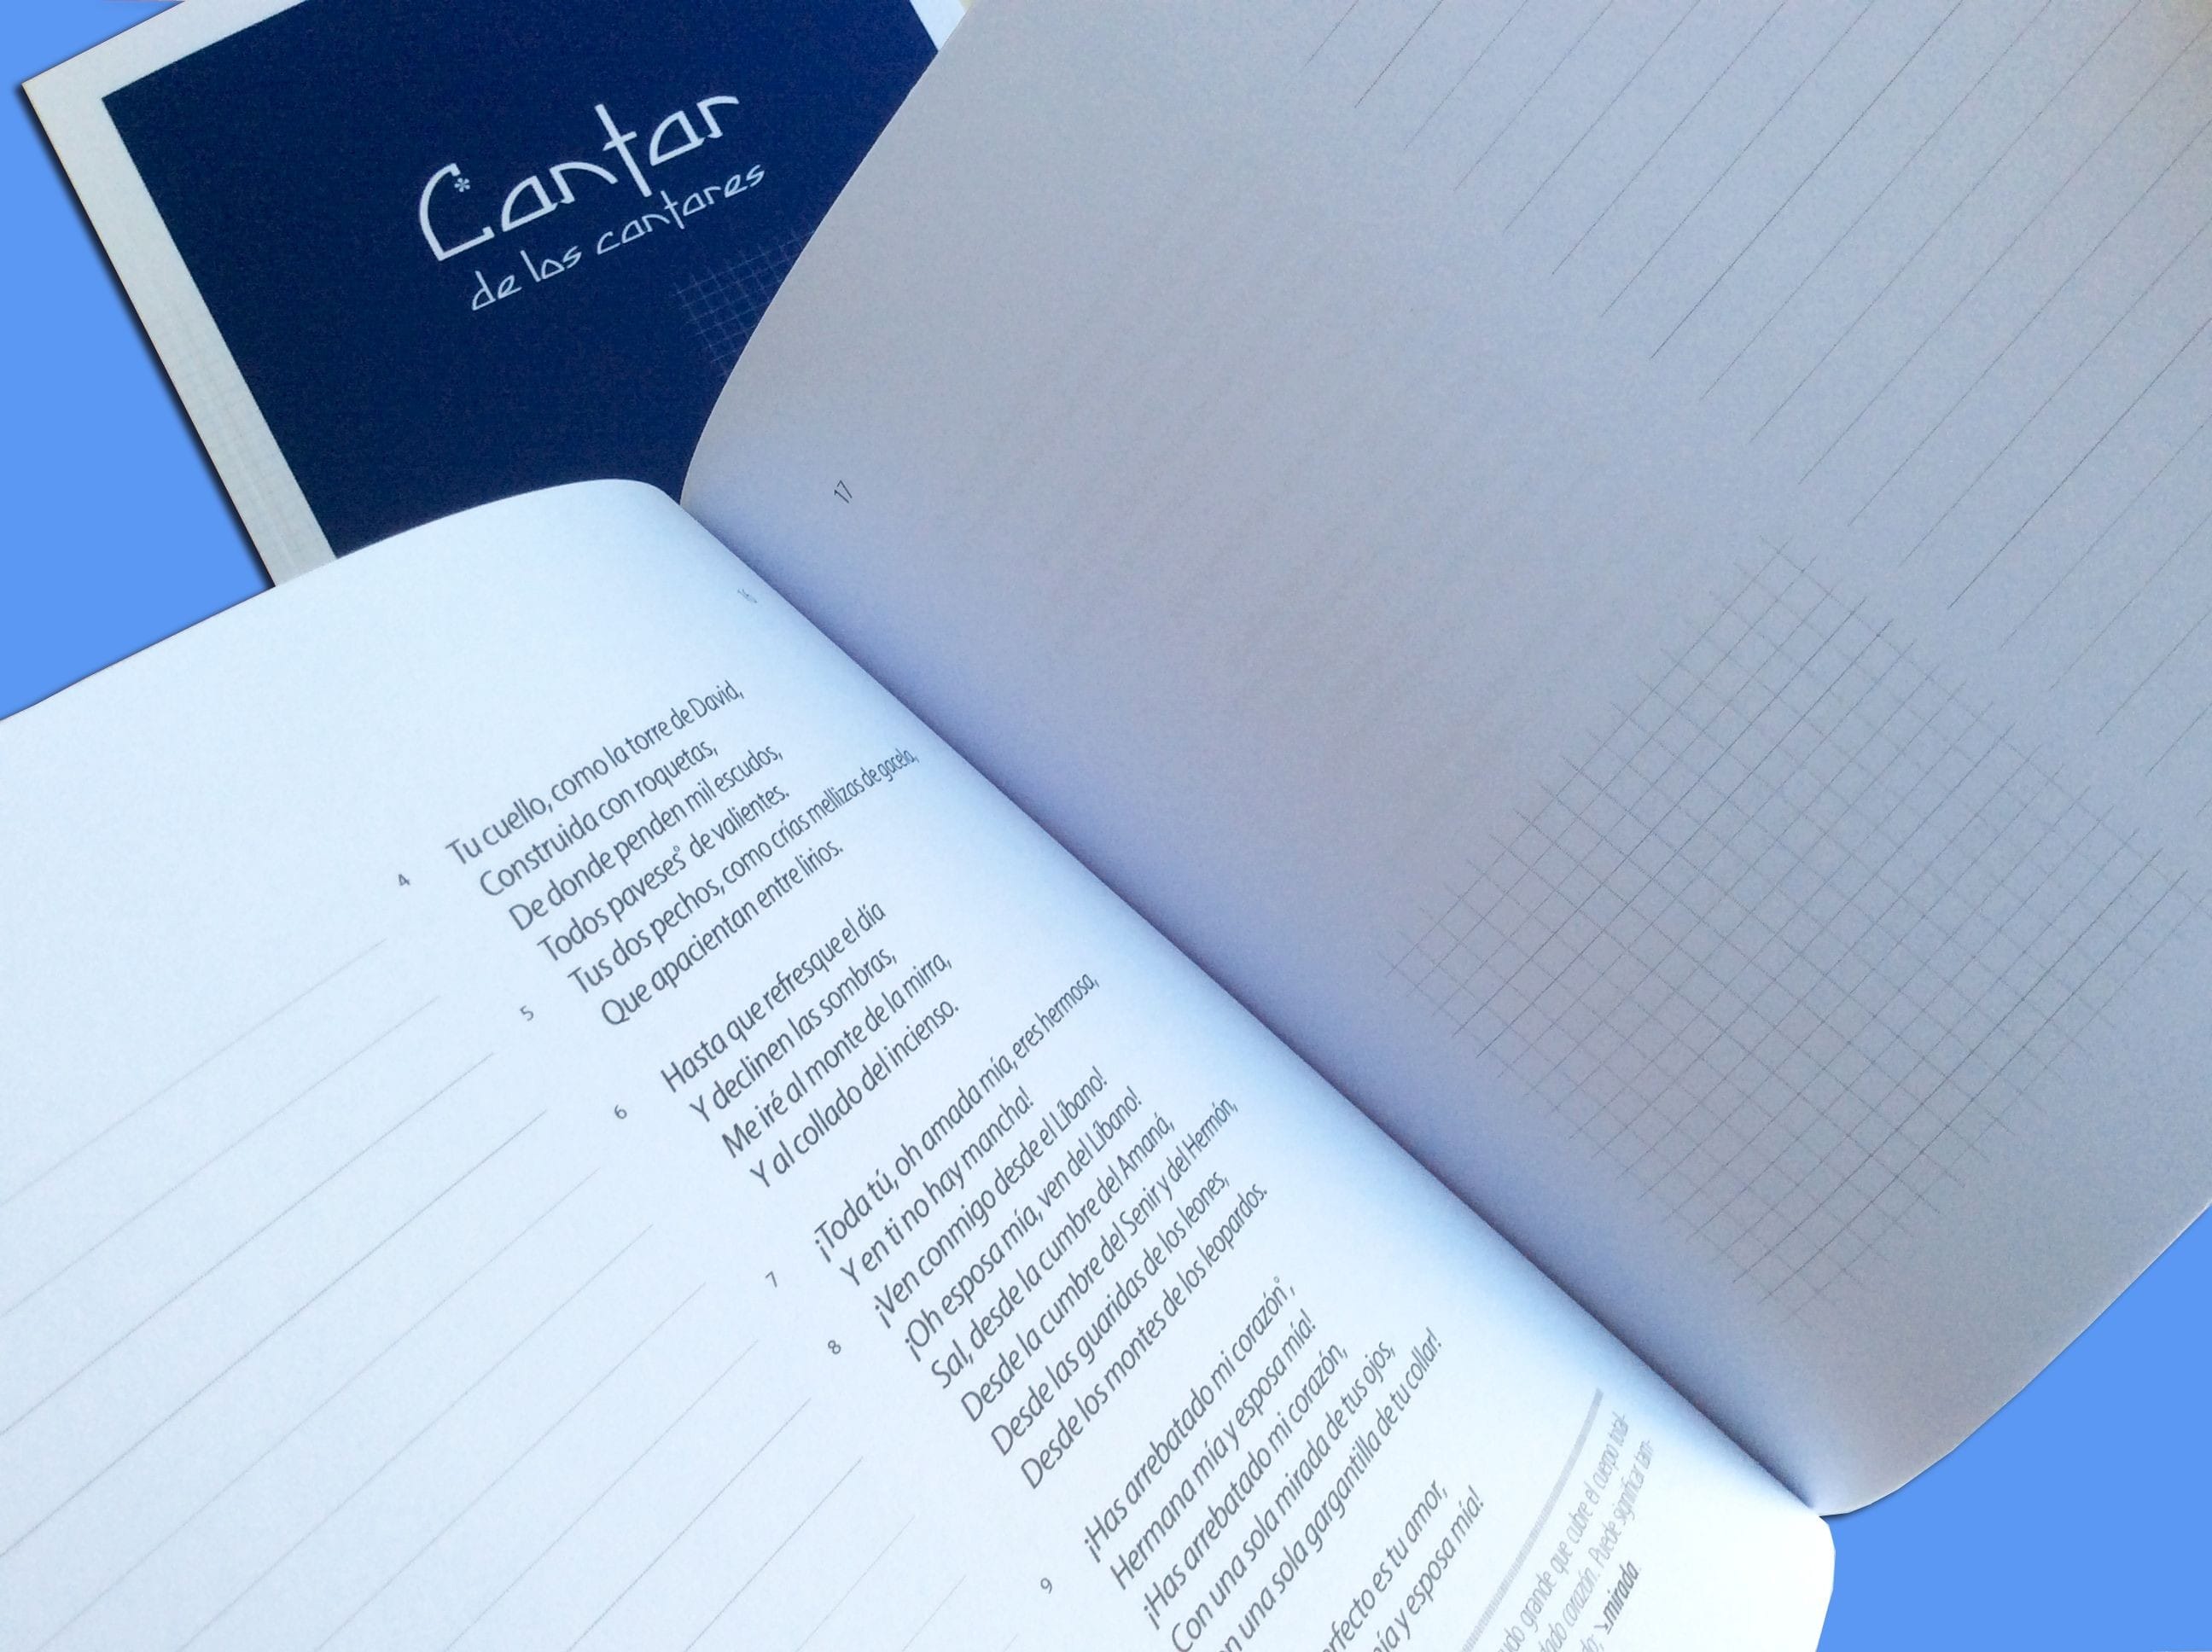 Cantar
de los cantares
17
16
4 Tu cuello, como la torre de David,
Construida con roquetas,
De donde penden mil escudos,
Todos paveses° de valientes.
5 Tus dos pechos, como crías mellizas de gacela,
Que apacientan entre lirios.
6 Hasta que refresque el día
Y declinen las sombras,
Me iré al monte de la mirra,
Y al collado del incienso.
7 ¡Toda tú, oh amada mía, eres hermosa,
Y en ti no hay mancha!
8 ¡Ven conmigo desde el Líbano!
¡Oh esposa mía, ven del Líbano!
Sal, desde la cumbre del Amaná,
Desde la cumbre del Senir y del Hermón,
Desde las guaridas de los leones,
Desde los montes de los leopardos.
9 ¡Has arrebatado mi corazón°,
Hermana mía y esposa mía!
¡Has arrebatado mi corazón,
Con una sola mirada de tus ojos,
una sola gargantilla de tu collar!
es tu amor,
y esposa mía!
grande que cubre el cuerpo total-
corazón. Puede significar tam-
mirada.